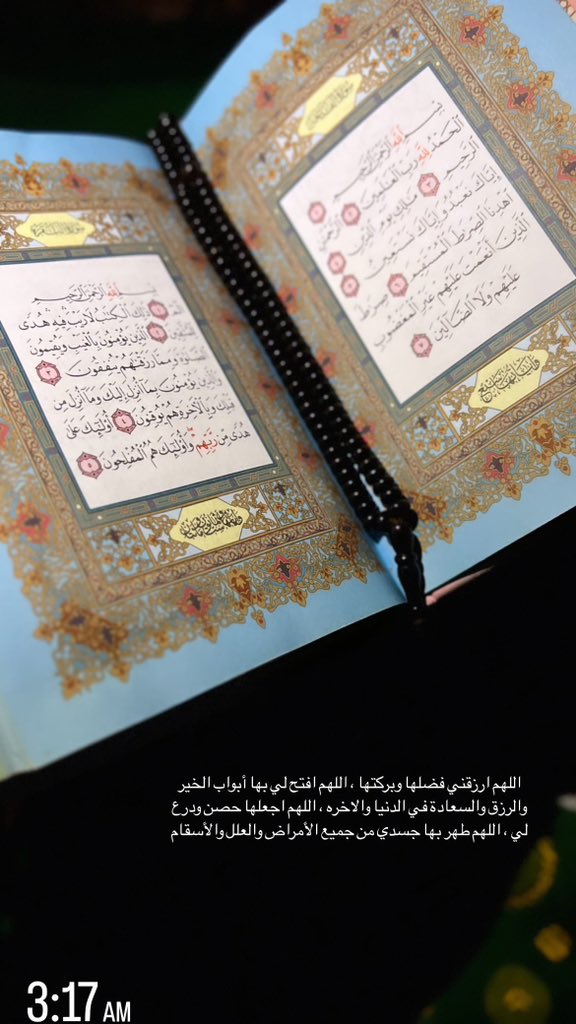 سورة الفاتحة
بسم الله الرحمن الرحيم ١
الحمد لله رب العلمين ٢ الرحمن
الرحيم ٣ ملك يوم الدين ٤
إياك نعبد وإياك نستعين ٥
اهدنا الصرط المستقيم ٦ صرط
الذين أنعمت عليهم غير المغضوب
عليهم ولا الضالين ٧
سورة البقرة
بسم الله الرحمن الرحيم
الم ١ ذلك الكتب لا ريب فيه هدى
للمتقين ٢ الذين يؤمنون بالغيب ويقيمون
الصلوة ومما رزقنهم ينفقون ٣
والذين يؤمنون بما أنزل إليك وما أنزل من
قبلك وبالآخرة هم يوقنون ٤ أولئك على
هدى من ربهم وأولئك هم المفلحون ٥
اللهم ارزقني فضلها وبركتها ، اللهم افتح لي بها أبواب الخير
والرزق والسعادة في الدنيا والاخره ، اللهم اجعلها حصن ودرع
لي ، اللهم طهر بها جسدي من جميع الأمراض والعلل والأسقام
3:17 AM